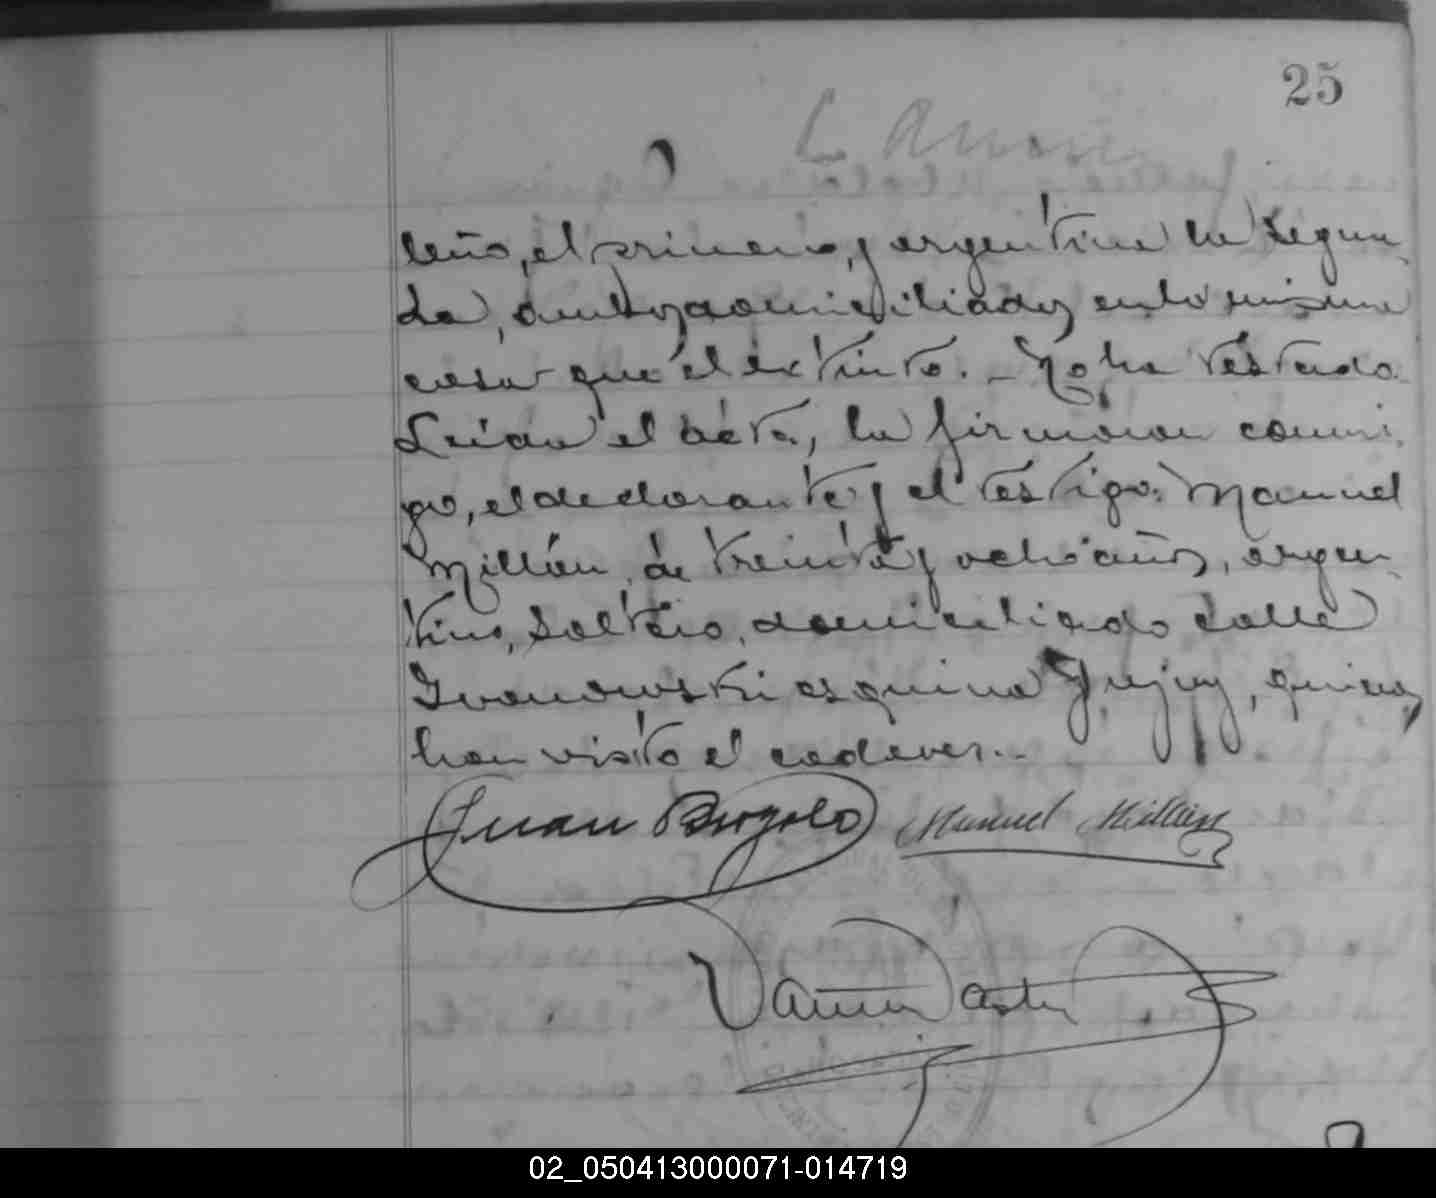 25
leño, el primero, y argentina la segun-
da, ambos domiciliados en la misma
casa que el extinto. - No ha testado.
Leída el acta, la firmaron conmi-
go, el declarante y el testigo: Manuel
Millán, de treinta y ocho años, argen-
tino, soltero, domiciliado calle
Ivanowski esquina Jujuy, quienes
han visto el cadaver. -
Juan Manuel Millán
02_050413000071-014719